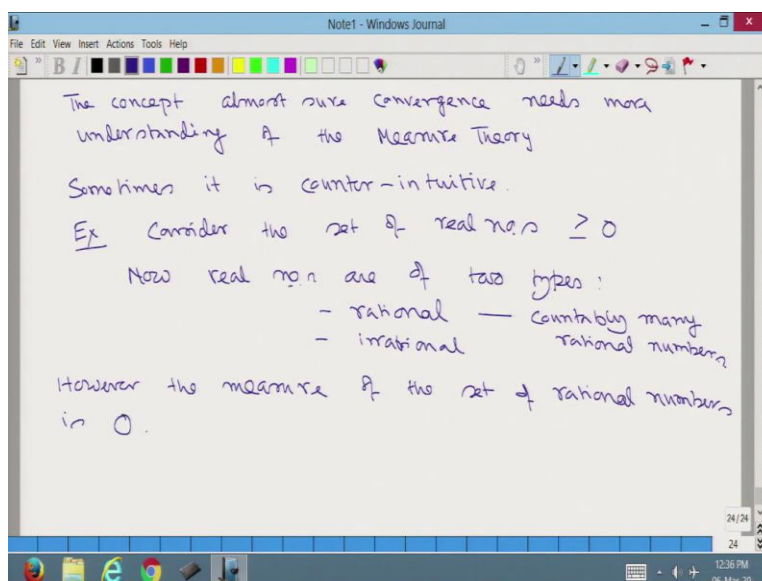 Note1 - Windows Journal
File Edit View Insert Actions Tools Help
B I
The concept almost sure convergence needs more
understanding of the Measure Theory
Sometimes it is counter-intuitive.
Ex Consider the set of real no.s ≥ 0
Now real no.s are of two types:
- rational — countably many
- irrational rational numbers
However the measure of the set of rational numbers
is 0.
24/24
24
12:36 PM
06-Mar-20